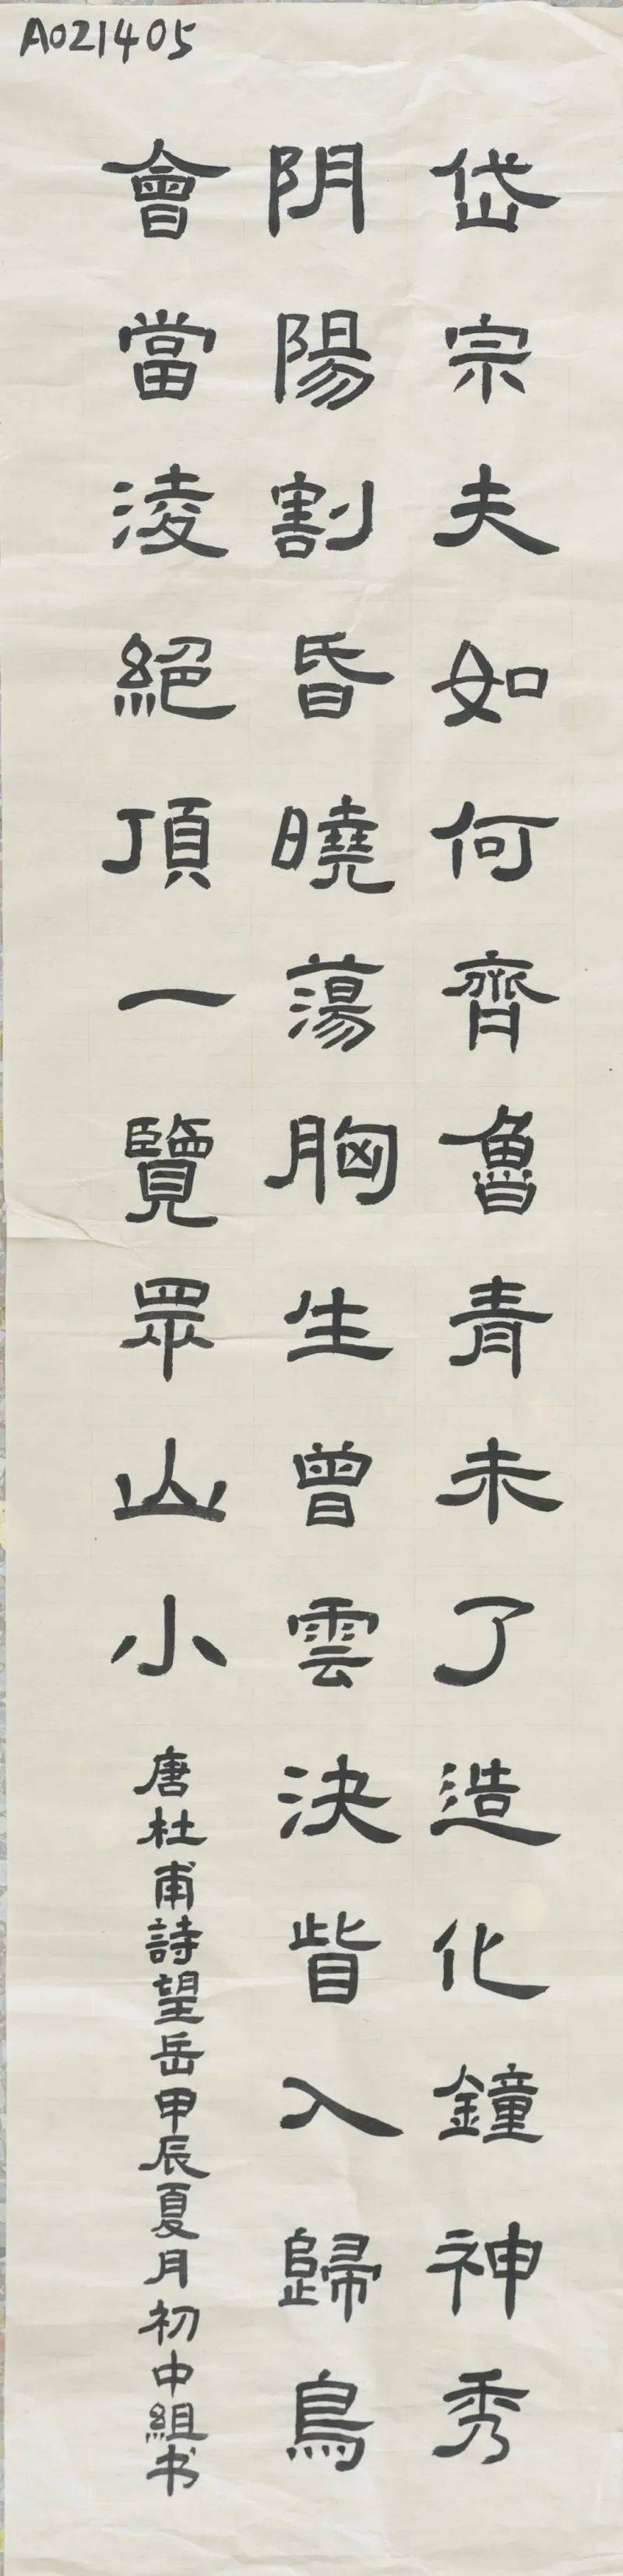 A021405
岱宗夫如何齊魯青未了造化鐘神秀
阴陽割昏曉蕩胸生曾雲決眥入歸鳥
會當淩絕頂一覽眾山小
唐杜甫詩望岳甲辰夏月初中組书